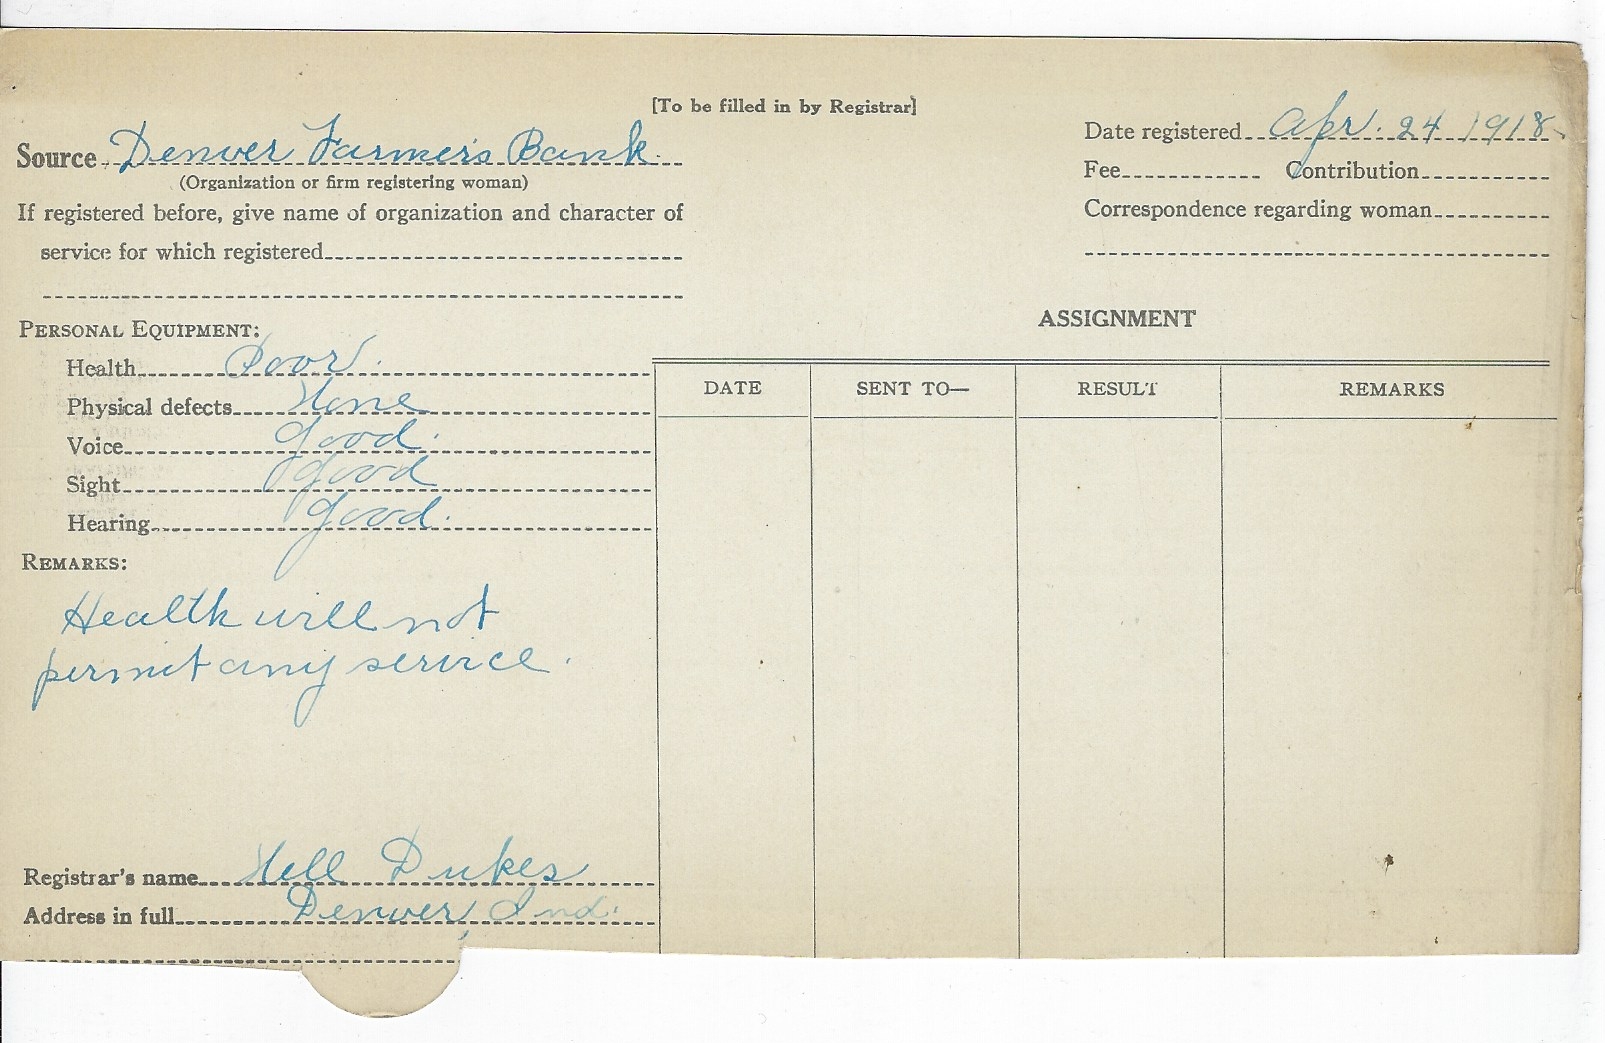 [To be filled in by Registrar]
Source Denver Farmers Bank
(Organization or firm registering woman)
If registered before, give name of organization and character of
service for which registered
Date registered Apr. 24 1918
Fee Contribution
Correspondence regarding woman
PERSONAL EQUIPMENT:
Health Poor.
Physical defects None
Voice Good.
Sight Good
Hearing Good.
REMARKS:
Health will not
permit any service.
Registrar's name Nell Dukes
Address in full Denver, Ind.
ASSIGNMENT
DATE SENT TO— RESULT REMARKS